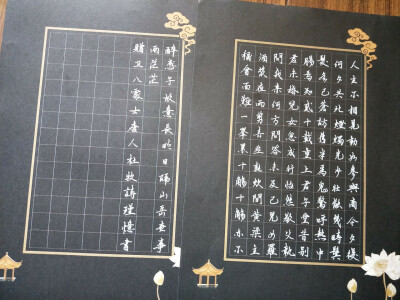 人生不相見動如參與商今夕復
何夕共此燈燭光少壯能幾時鬢
髮各已蒼訪舊半為鬼驚呼熱中
腸焉知貳十載重上君子堂昔別
君未婚兒女忽成行怡然敬父執
問我來何方問答未及已兒女羅
酒漿夜雨剪春韭新炊間黃粱主
稱會面難一舉累十觴十觴亦不
醉感子故意長明日隔山岳世事
兩茫茫
贈卫八處士唐人杜牧詩瑾憶書